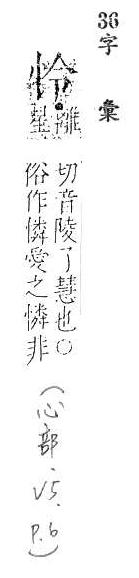 36 字彙
怜
離
呈
切音陵了慧也○
俗作憐愛之憐非
(心部. V5. P.6)